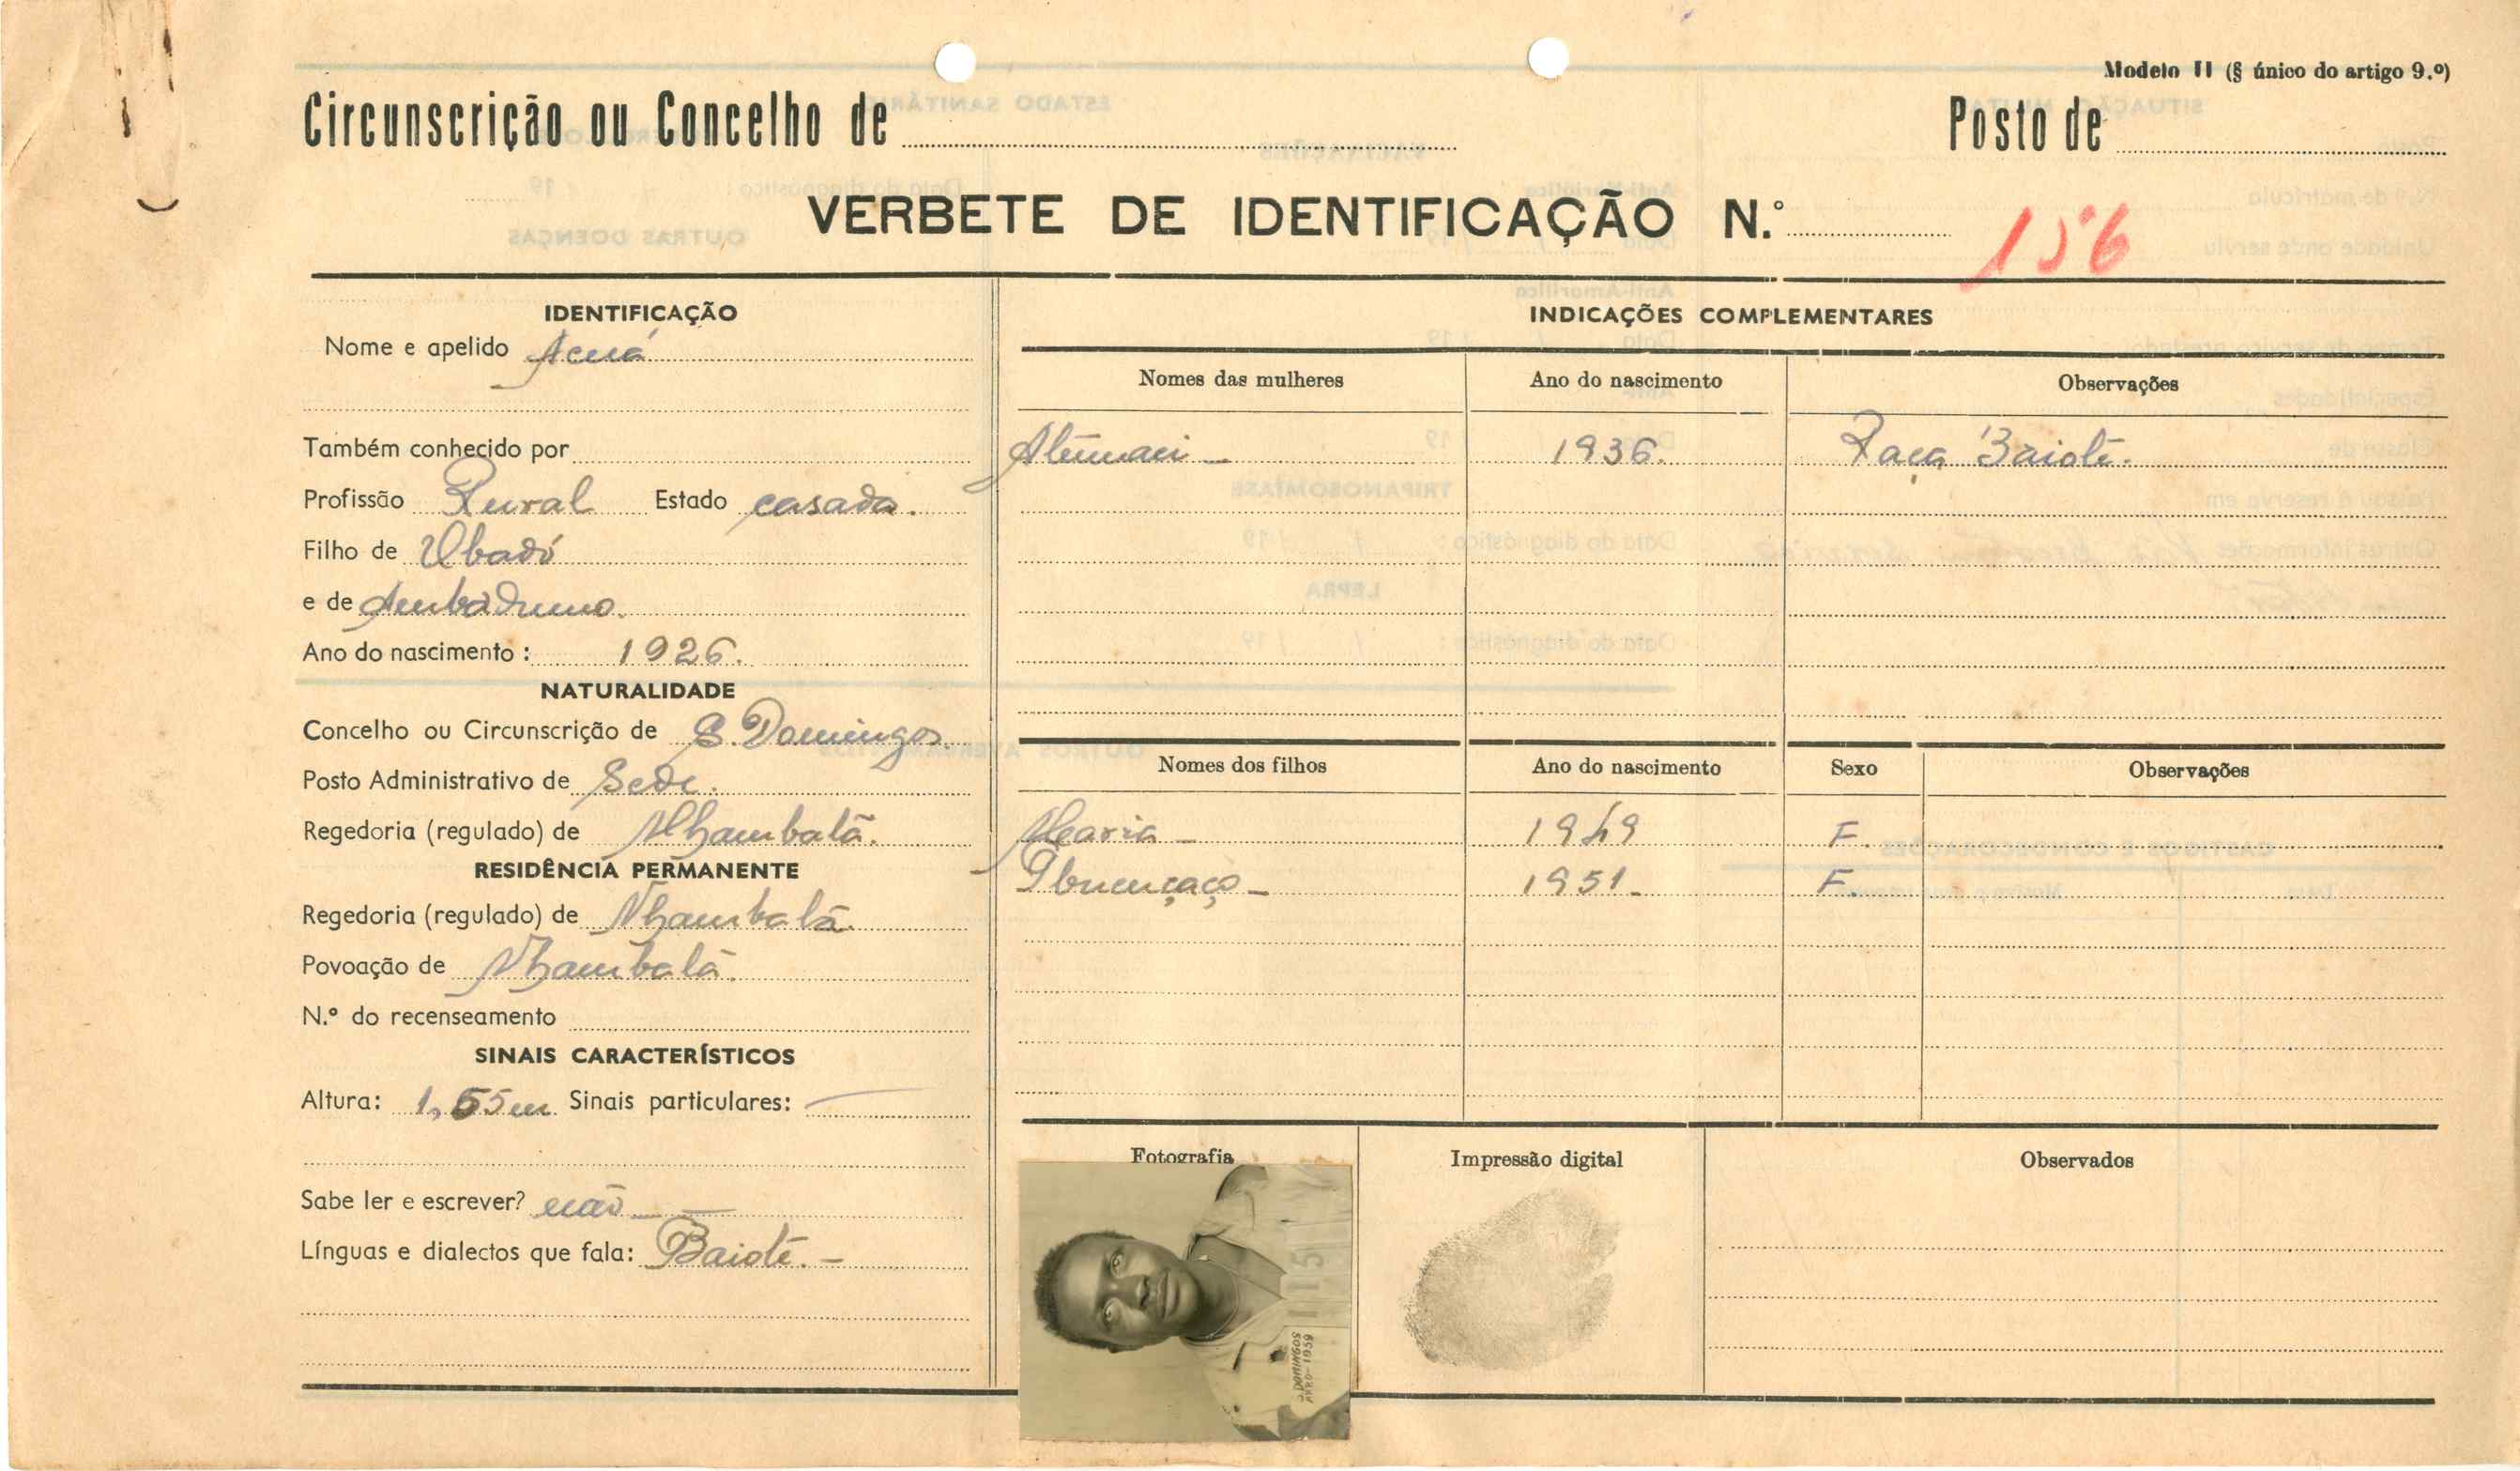 Modelo II (§ único do artigo 9.º)
Circunscrição ou Concelho de
Posto de
VERBETE DE IDENTIFICAÇÃO N.º 156
IDENTIFICAÇÃO
Nome e apelido
Também conhecido por
Profissão Rural Estado casado.
Filho de Ubadó
e de
Ano do nascimento: 1926.
NATURALIDADE
Concelho ou Circunscrição de S. Domingos.
Posto Administrativo de Sede.
Regedoria (regulado) de Nhambalã.
RESIDÊNCIA PERMANENTE
Regedoria (regulado) de Nhambalã.
Povoação de Nhambalã.
N.º do recenseamento
SINAIS CARACTERÍSTICOS
Altura: 1,65m Sinais particulares: —
Sabe ler e escrever? não —
Línguas e dialectos que fala: Baiote. —
INDICAÇÕES COMPLEMENTARES
Nomes das mulheres Ano do nascimento Observações
1936. Raça Baiote.
Nomes dos filhos Ano do nascimento Sexo Observações
Maria — 1949 F.
1951. F.
Fotografia Impressão digital Observados
S. DOMINGOS
1959